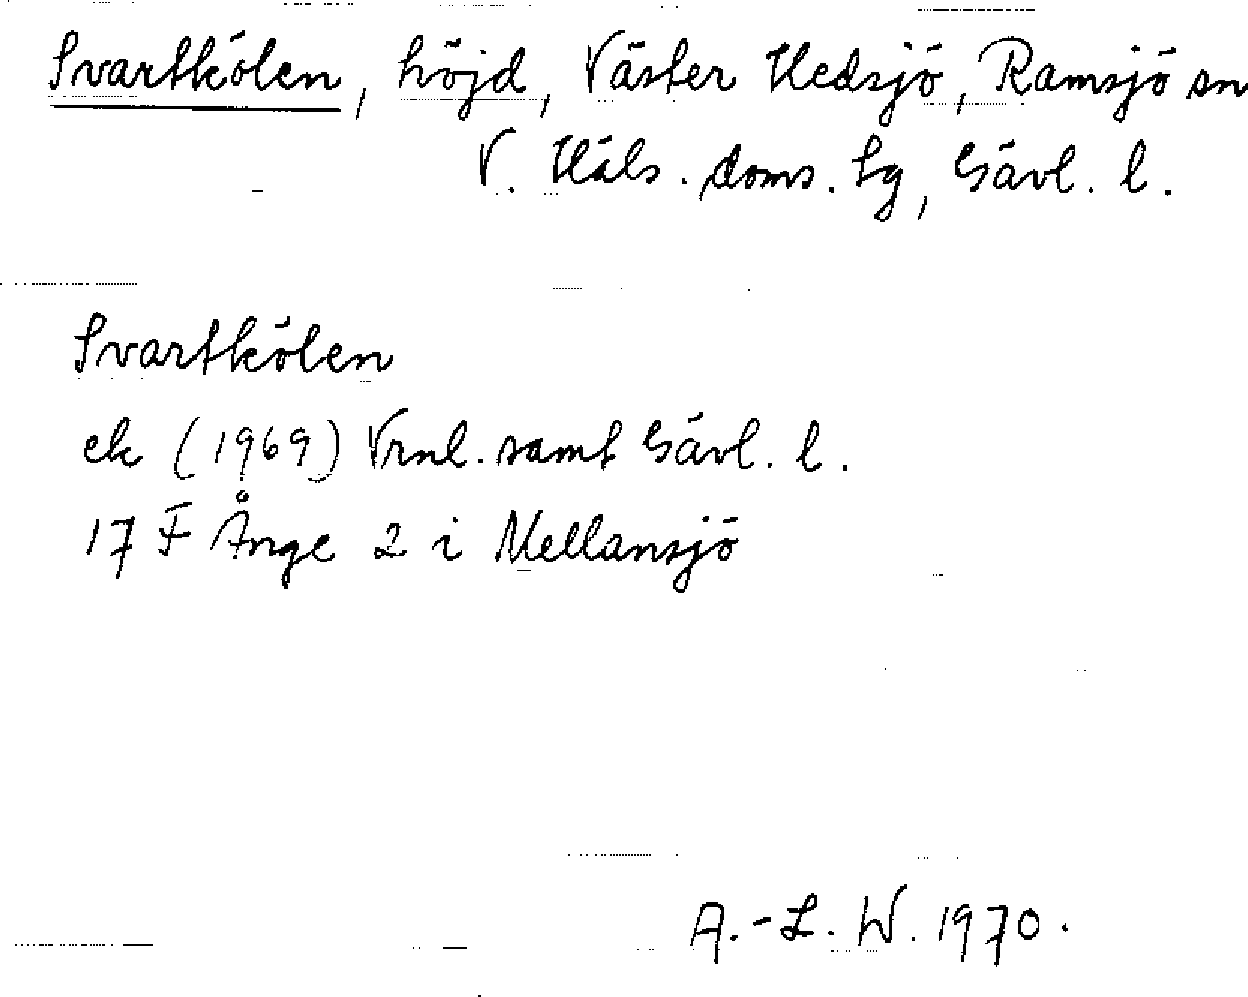 Svartkölen, höjd, Väster Hedsjö, Ramsjö sn
V. Häls. doms. Lg, Gävl. l.
Svartkölen
ek (1969) Vrnl. samt Gävl. l.
17 F Ånge 2 i Mellansjö
A.-L. W. 1970.